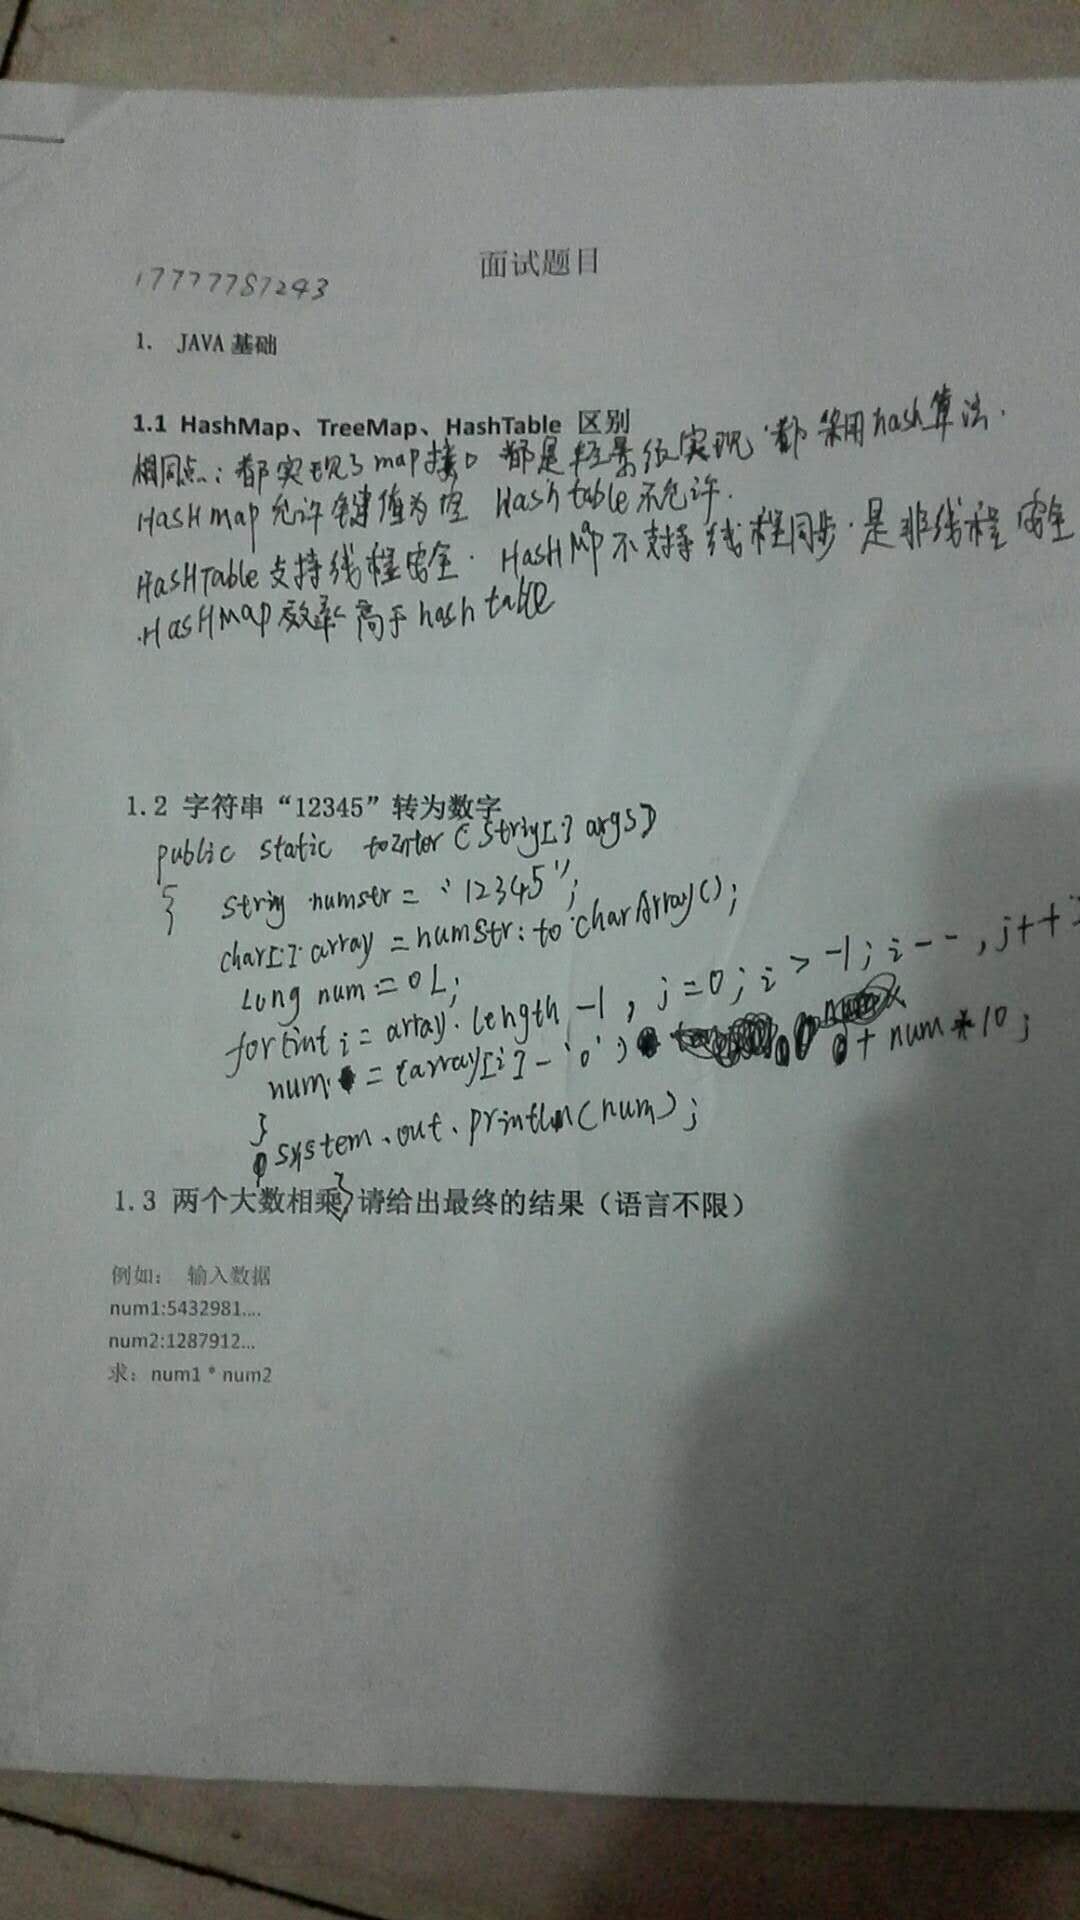 面试题目
17777787243
1. JAVA 基础
1.1 HashMap、TreeMap、HashTable 区别
相同点:都实现了map接口 都是轻量级实现 都采用hash算法.
HasHmap 允许键值为空 Hashtable不允许.
HasHTable支持线程安全. HasHMap不支持线程同步.是非线程安全
.HasHMap效率高于hash table
1.2 字符串“12345”转为数字
public static toInter(String[] args)
{ String numstr = “12345”;
char[] array = numStr.toCharArray();
Long num = 0L;
for(int i = array.length -1, j=0; i > -1; i--, j++
num = (array[i] - '0') + num * 10;
}
System.out.println(num);
}
1.3 两个大数相乘,请给出最终的结果(语言不限)
例如: 输入数据
num1:5432981....
num2:1287912...
求:num1 * num2